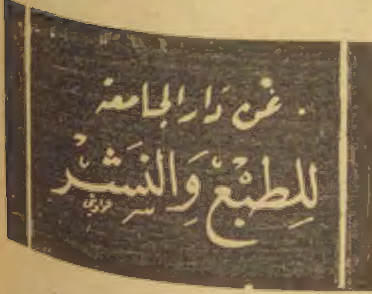 عن دَار الجامعة
للِطبْع وَالنَشْر